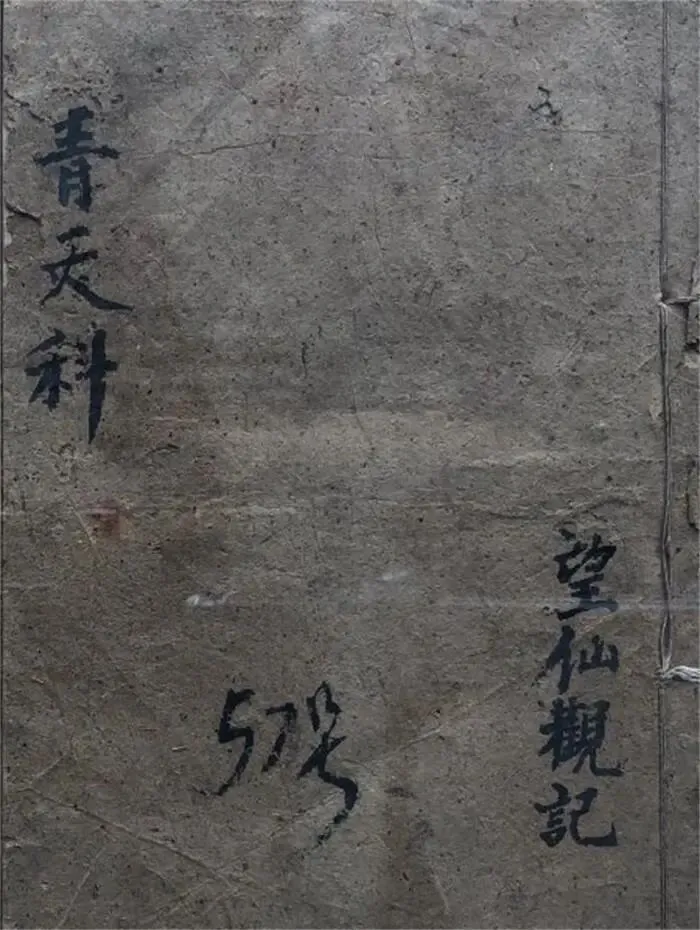 青天科
望仙觀記
57号